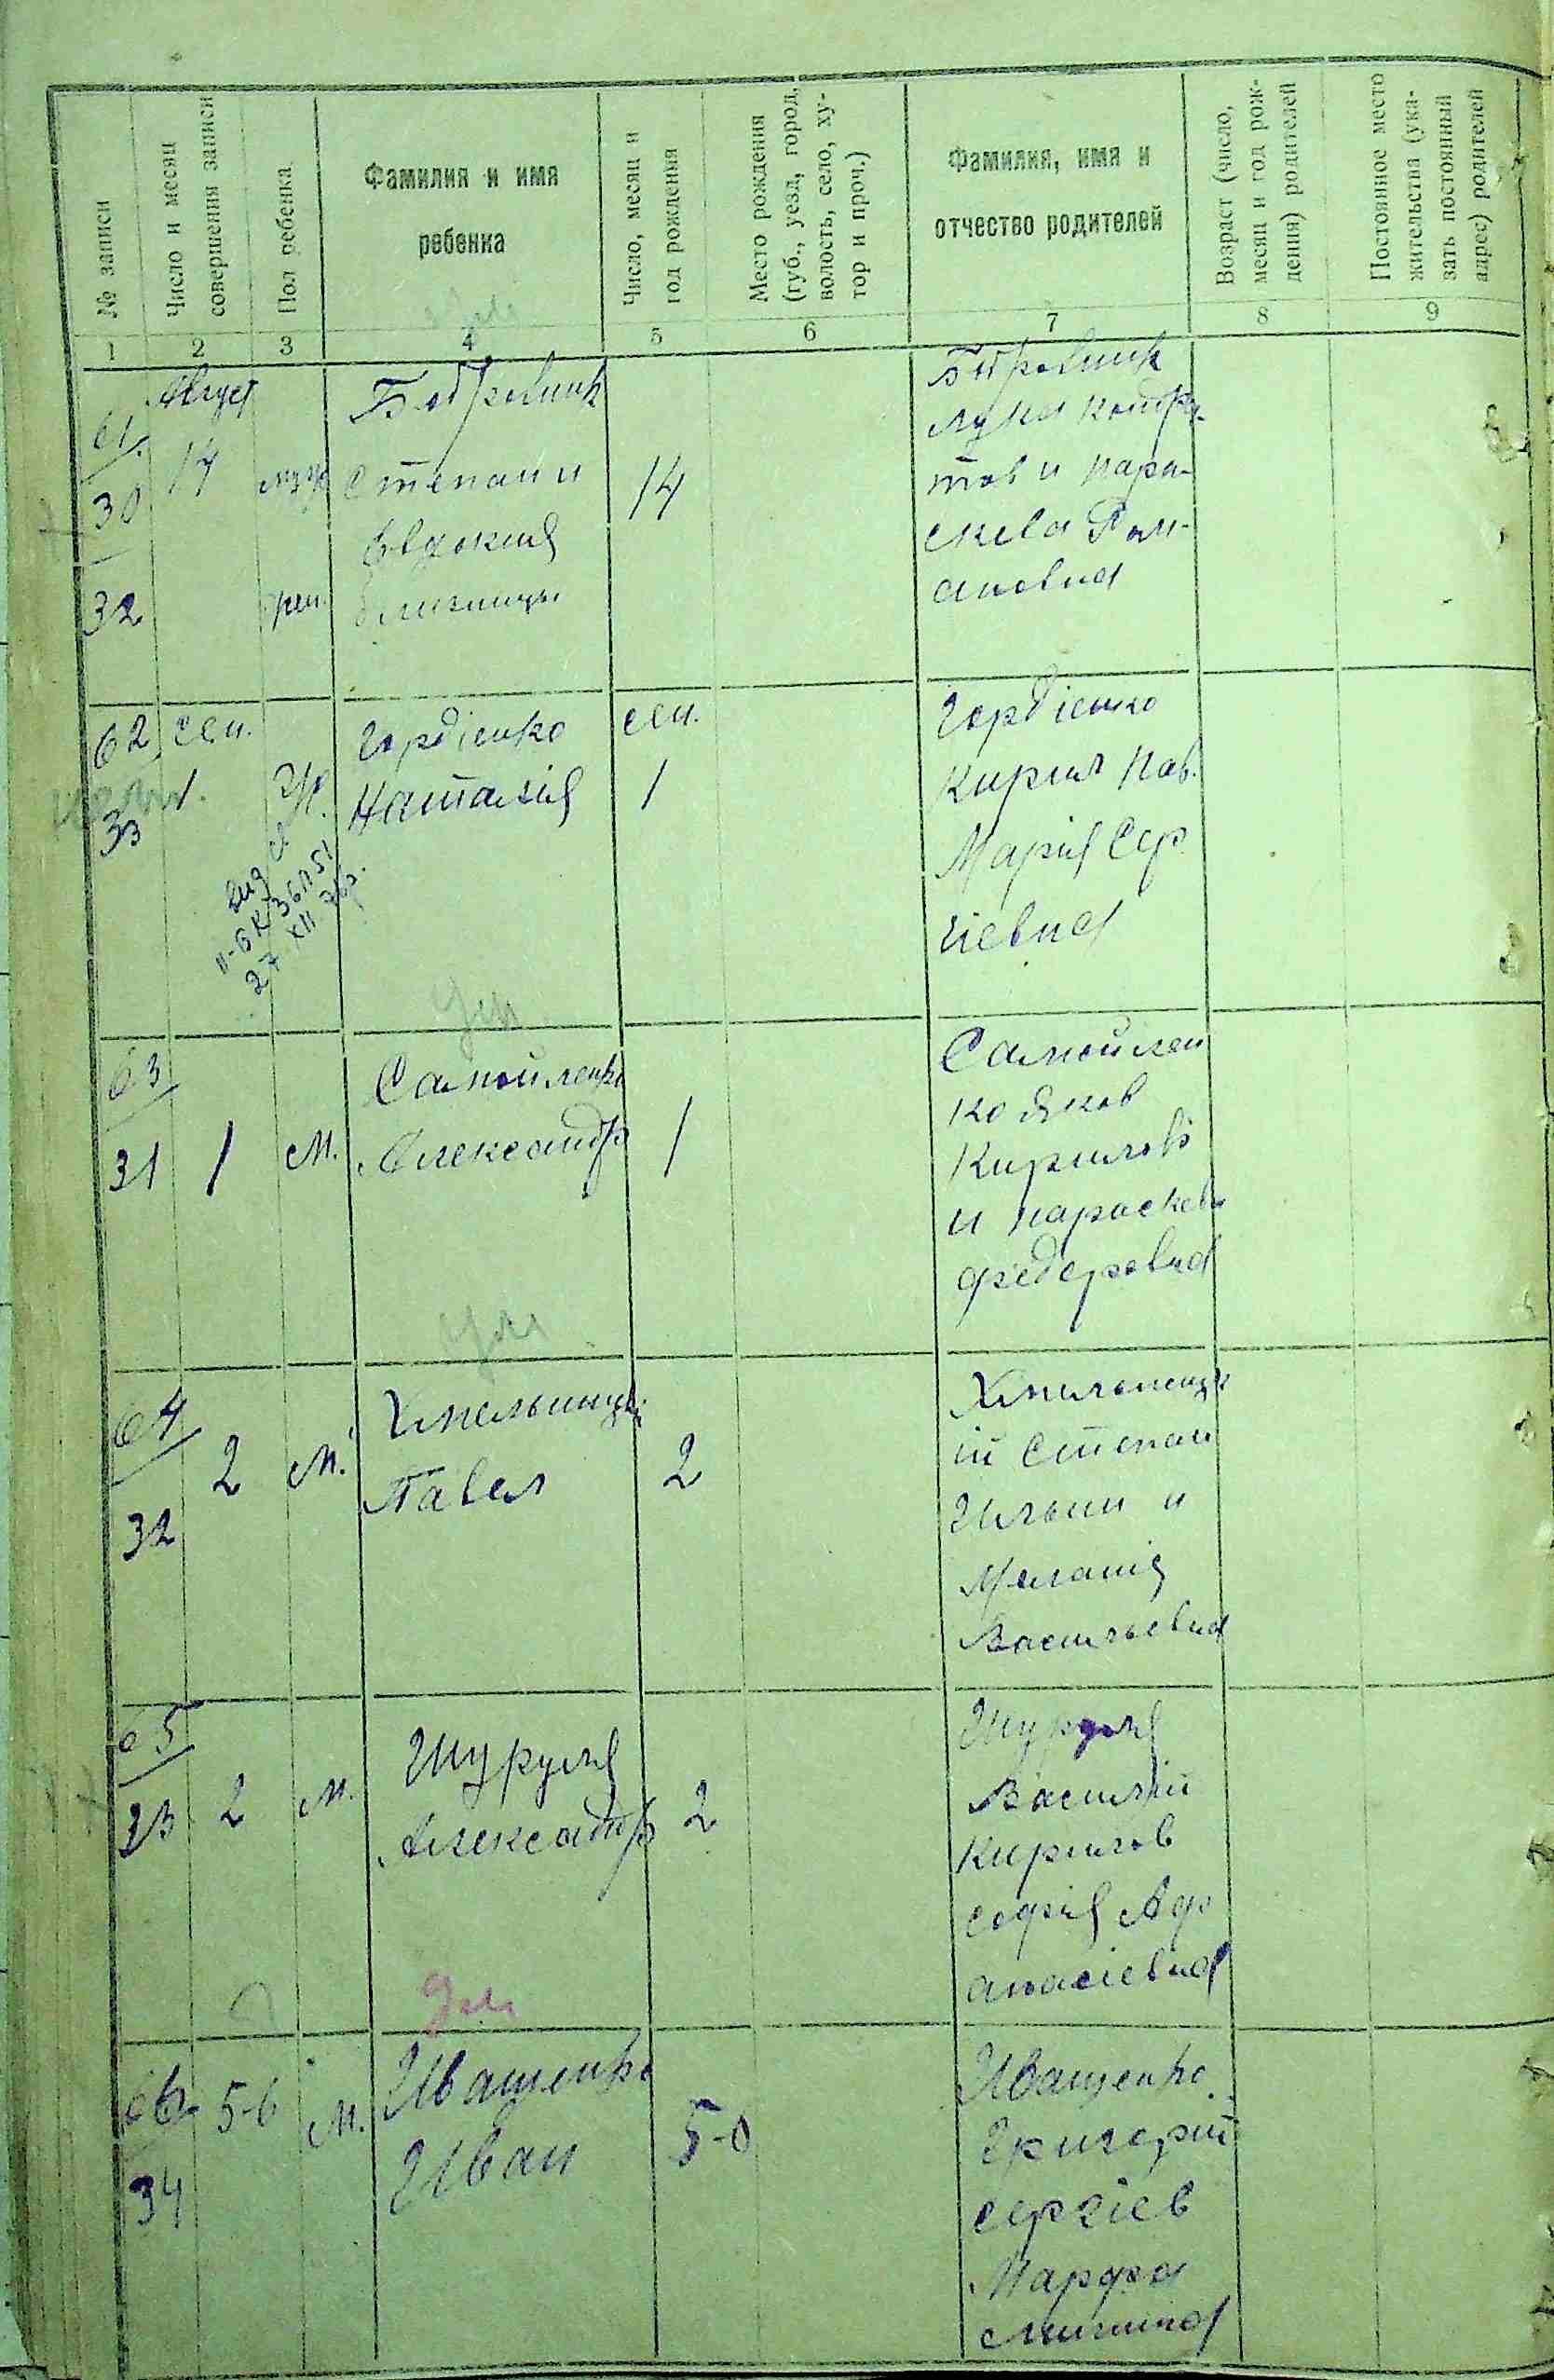 № записи
Число и месяц
совершения записи
Пол ребенка
Фамилия и имя
ребенка
Число, месяц и
год рождения
Место рождения
(губ., уезд, город,
волость, село, ху-
тор и проч.)
Фамилия, имя и
отчество родителей
Возраст (число,
месяц и год рож-
дения) родителей
Постоянное место
жительства (ука-
зать постоянный
адрес) родителей
1 2 3 4 5 6 7 8 9
Август
61
14
30
32
муж
жен.
Степан и
Евдокия
близнецы
14
Лука
тов и Пара-
скева Ром-
ановна
62 сен.
1.
33
Ж.
Гордіенко
Наталія
сен.
1
Гордіенко
Кирил Пав.
Марія Сер
гіевна
27 XII
63
31 1 М.
Самойленко
Александр
1
Самойлен
ко Яков
Кирилов
и Параскева
Федоровна
64
32
2 М.
Хмельницкі
Павел
2
Хмельницк
ій Степан
Ильин и
Меланія
Васильевна
65
33 2 М.
Шуруля
Александр
2
Шуруля
Василій
Кирилов
Софія Аф
анасіевна
66
34
5-6 М.
Иващенко
Иван
Иващенко
Григорій
Сергіев
Марфа